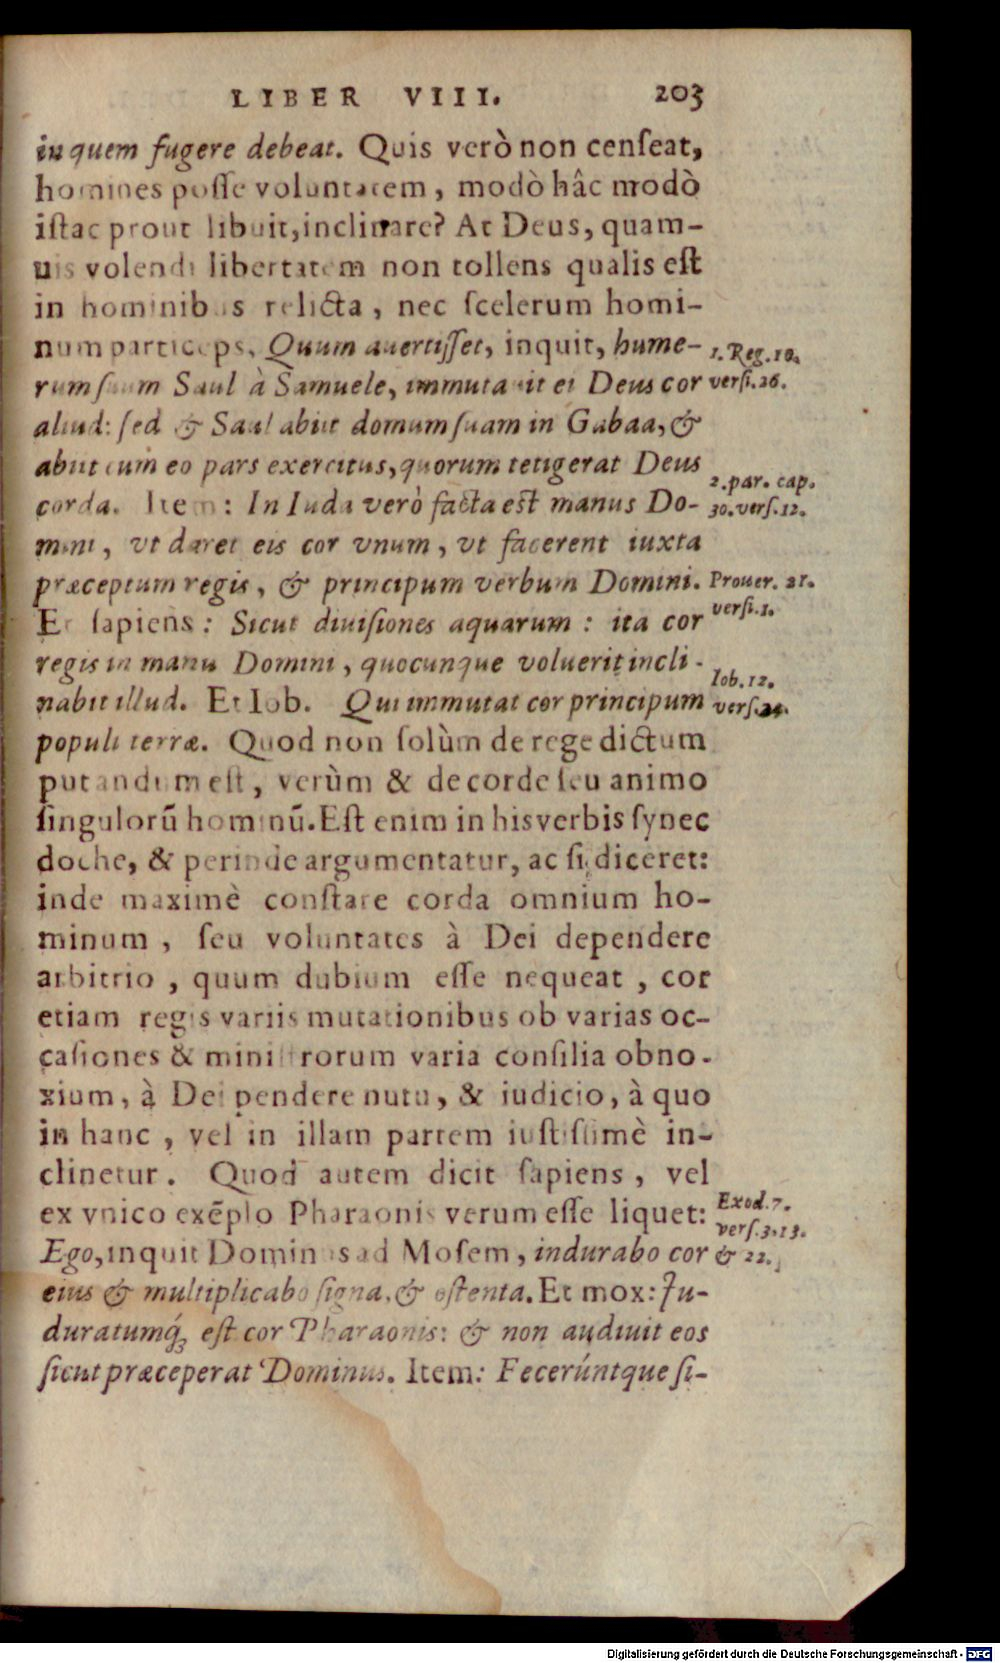 LIBER VIII. 203
in quem fugere debeat. Quis verò non censeat,
homines posse voluntatem, modò hâc modò
istac prout libuit, inclinare? At Deus, quam-
uis volendi libertatem non tollens qualis est
in hominibus relicta, nec scelerum homi-
num particeps, Quum auertisset, inquit, hume-
rum suum Saul à Samuele, immutauit ei Deus cor
aliud: sed & Saul abiit domum suam in Gabaa, &
abiit cum eo pars exercitus, quorum tetigerat Deus
corda. Item: In Iuda verò facta est manus Do-
mini, vt daret eis cor vnum, vt facerent iuxta
præceptum regis, & principum verbum Domini.
Et sapiens: Sicut diuisiones aquarum: ita cor
regis in manu Domini, quocunque voluerit incli-
nabit illud. Et Iob. Qui immutat cor principum
populi terræ. Quod non solùm de rege dictum
putandum est, verùm & de corde seu animo
singulorū hominū. Est enim in his verbis synec
doche, & perinde argumentatur, ac si diceret:
inde maximè constare corda omnium ho-
minum, seu voluntates à Dei dependere
arbitrio, quum dubium esse nequeat, cor
etiam regis variis mutationibus ob varias oc-
casiones & ministrorum varia consilia obno-
xium, à Dei pendere nutu, & iudicio, à quo
in hanc, vel in illam partem iustissimè in-
clinetur. Quod autem dicit sapiens, vel
ex vnico exēplo Pharaonis verum esse liquet:
Ego, inquit Dominus ad Mosem, indurabo cor
eius & multiplicabo signa, & ostenta. Et mox: In-
duratumq́; est cor Pharaonis: & non audiuit eos
sicut præceperat Dominus. Item: Fecerúntque si-
1. Reg. 10.
versi. 26.
2. par. cap.
30. vers. 12.
Prouer. 21.
versi. 1.
Iob. 12.
vers. 24.
Exod. 7.
vers. 3. 13.
& 22.
Digitalisierung gefördert durch die Deutsche Forschungsgemeinschaft - DFG